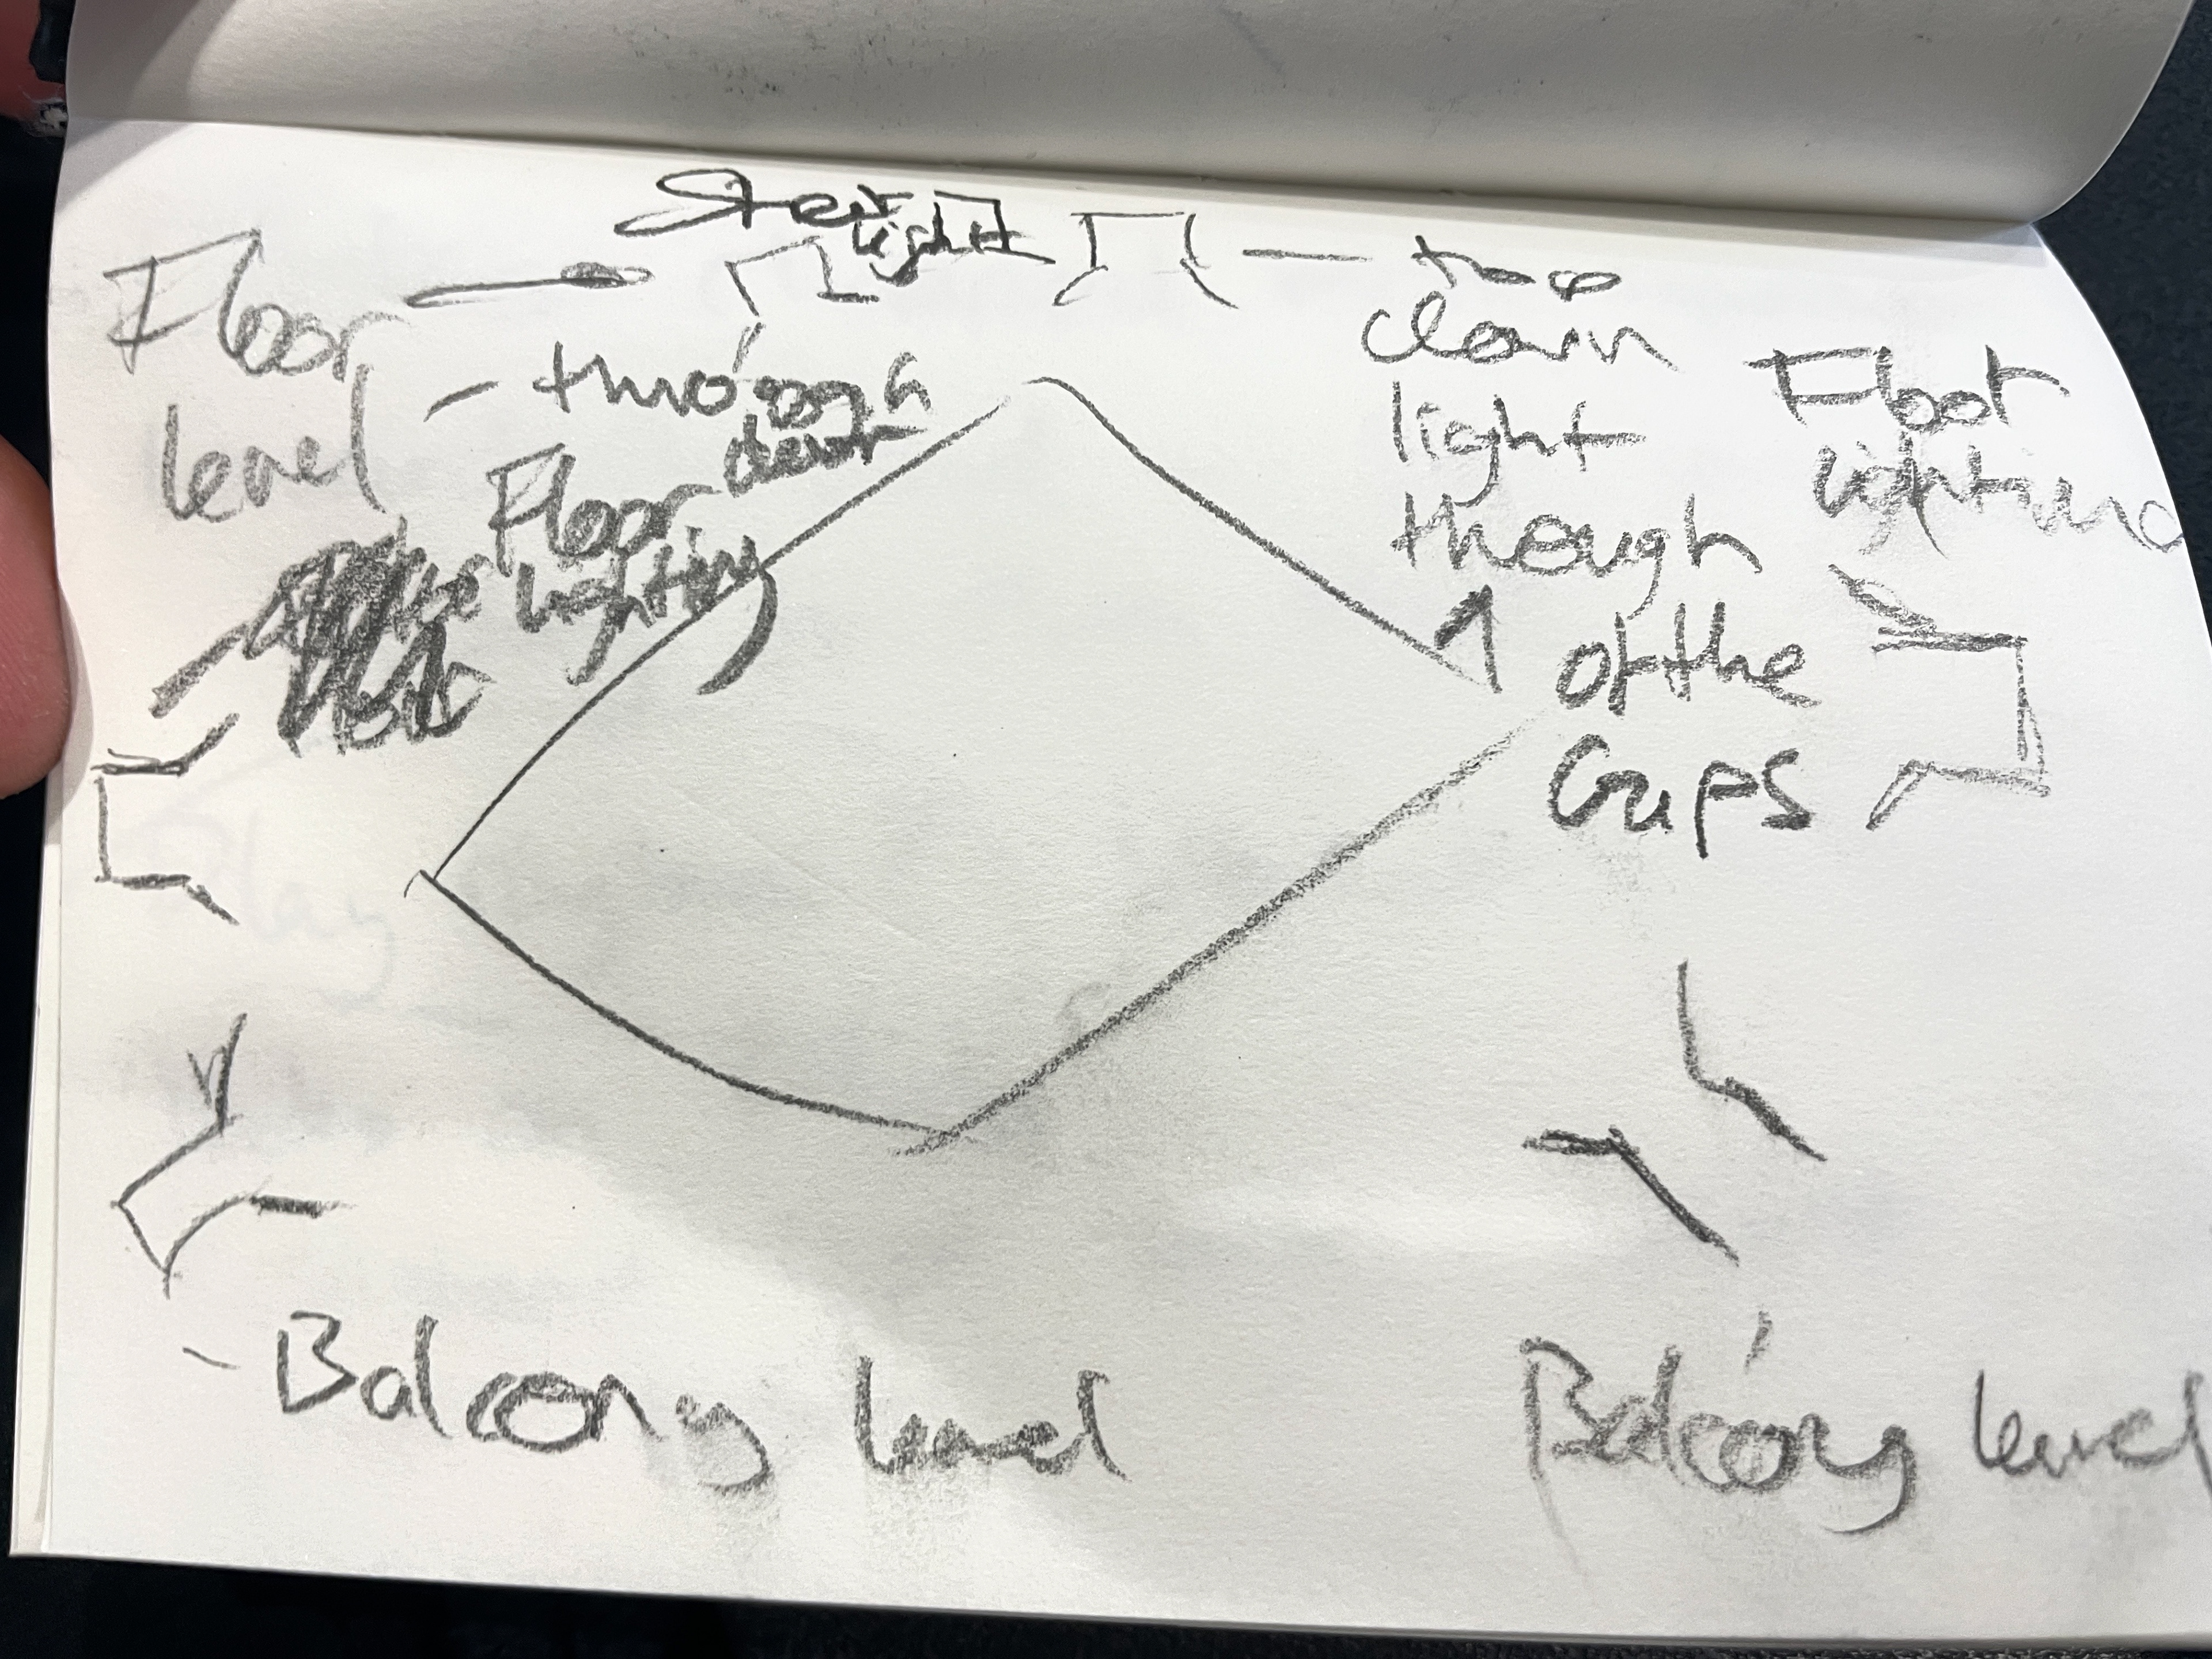 light
Floor
level
through
door
Floor
lighting
two
down
light
though
of the
Gaps
Floor
lighting
- Balcony level
Balcony level